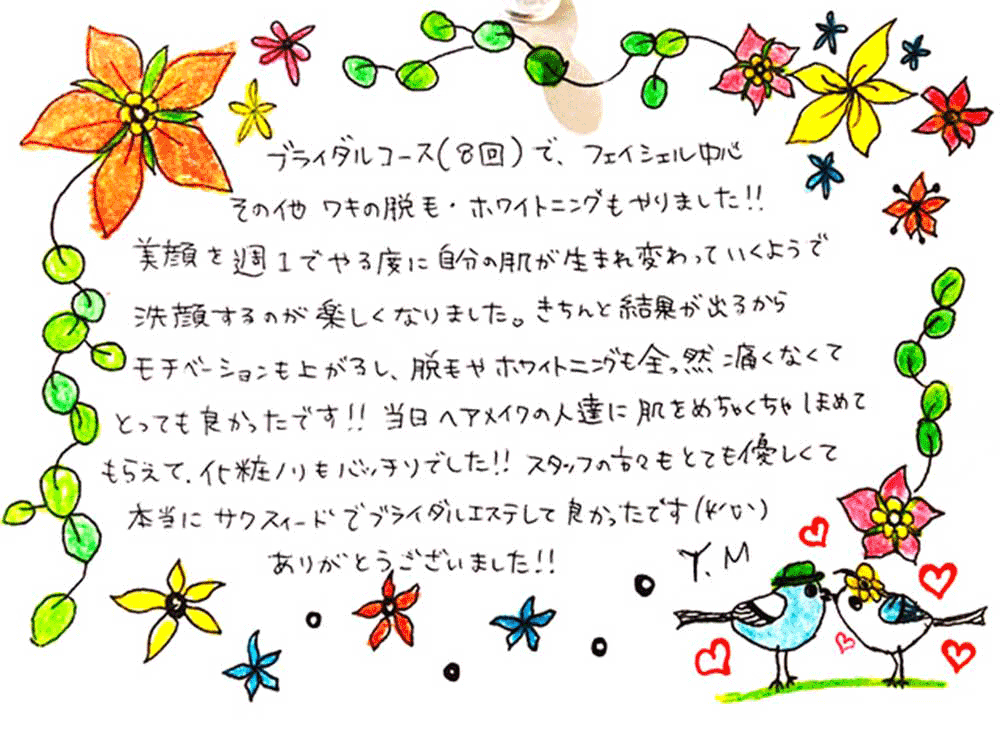 ブライダルコース(8回)で、フェイシャル中心
その他 ワキの脱毛・ホワイトニングもやりました!!
美顔を週1でやる度に自分の肌が生まれ変わっていくようで
洗顔するのが楽しくなりました。きちんと結果が出るから
モチベーションも上がるし、脱毛やホワイトニングも全っ然痛くなくて
とっても良かったです!! 当日ヘアメイクの人達に肌をめちゃくちゃほめて
もらえて、化粧ノリもバッチリでした!! スタッフの方々もとても優しくて
本当にサクスィードでブライダルエステして良かったです
ありがとうございました!! Y.M